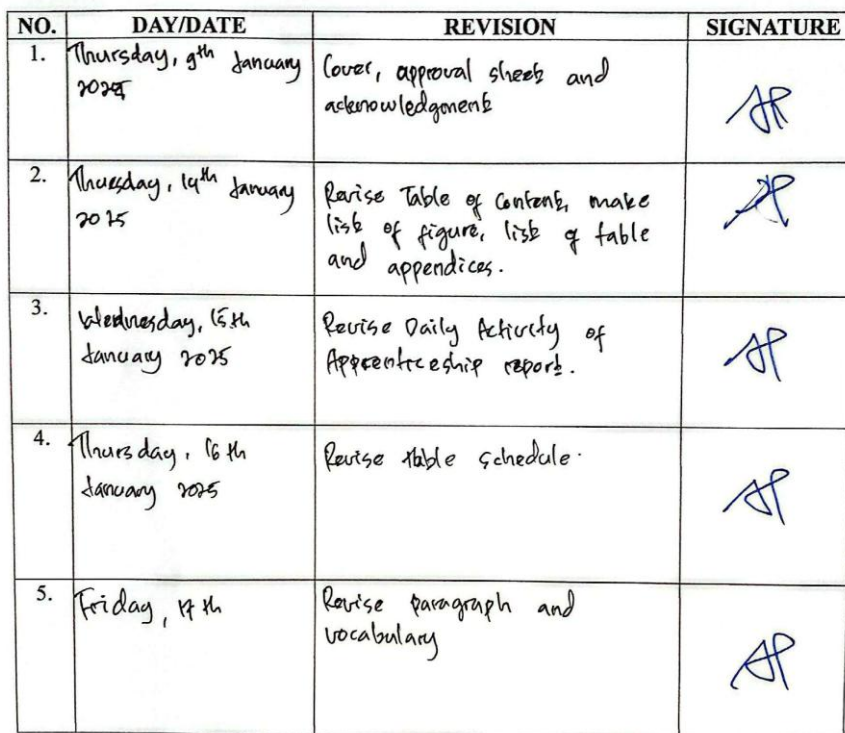 NO. DAY/DATE REVISION SIGNATURE
1. Thursday, 9th January
2025
Cover, approval sheet and
acknowledgment
2. Thuesday, 14th January
2025
Revise Table of Content, make
list of figure, list of table
and appendices.
3. Wednesday, 15th
January 2025
Revise Daily Activity of
Apprenticeship report.
4. Thursday, 16th
January 2025
Revise table schedule.
5. Friday, 17th
Revise paragraph and
vocabulary